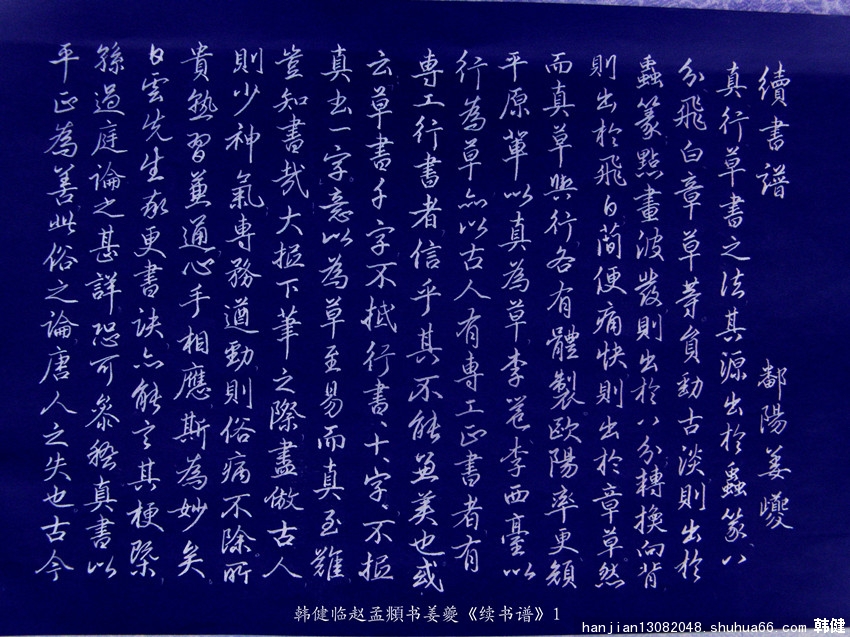 續書譜 鄱陽姜夔
真行草書之法其源出於蟲篆八
分飛白章草等員勁古淡則出於
蟲篆點畫波發則出於八分轉換向背
則出於飛白簡便痛快則出於章草然
而真草與行各有體製歐陽率更顏
平原軰以真為草李邕李西臺以
行為草亦以古人有專工正書者有
專工行書者信乎其不能兼美也或
云草書千字不抵行書十字不抵
真書一字意以為草至易而真至難
豈知書哉大抵下筆之際盡倣古人
則少神氣專務遒勁則俗病不除所
貴熟習兼通心手相應斯為妙矣
白雲先生歐更書訣亦能言其梗槩
孫過庭論之甚詳恐可參稽真書以
平正為善此俗之論唐人之失也古今
韩健临赵孟頫书姜夔《续书谱》1
hanjian13082048.shuhua66.com 韩健